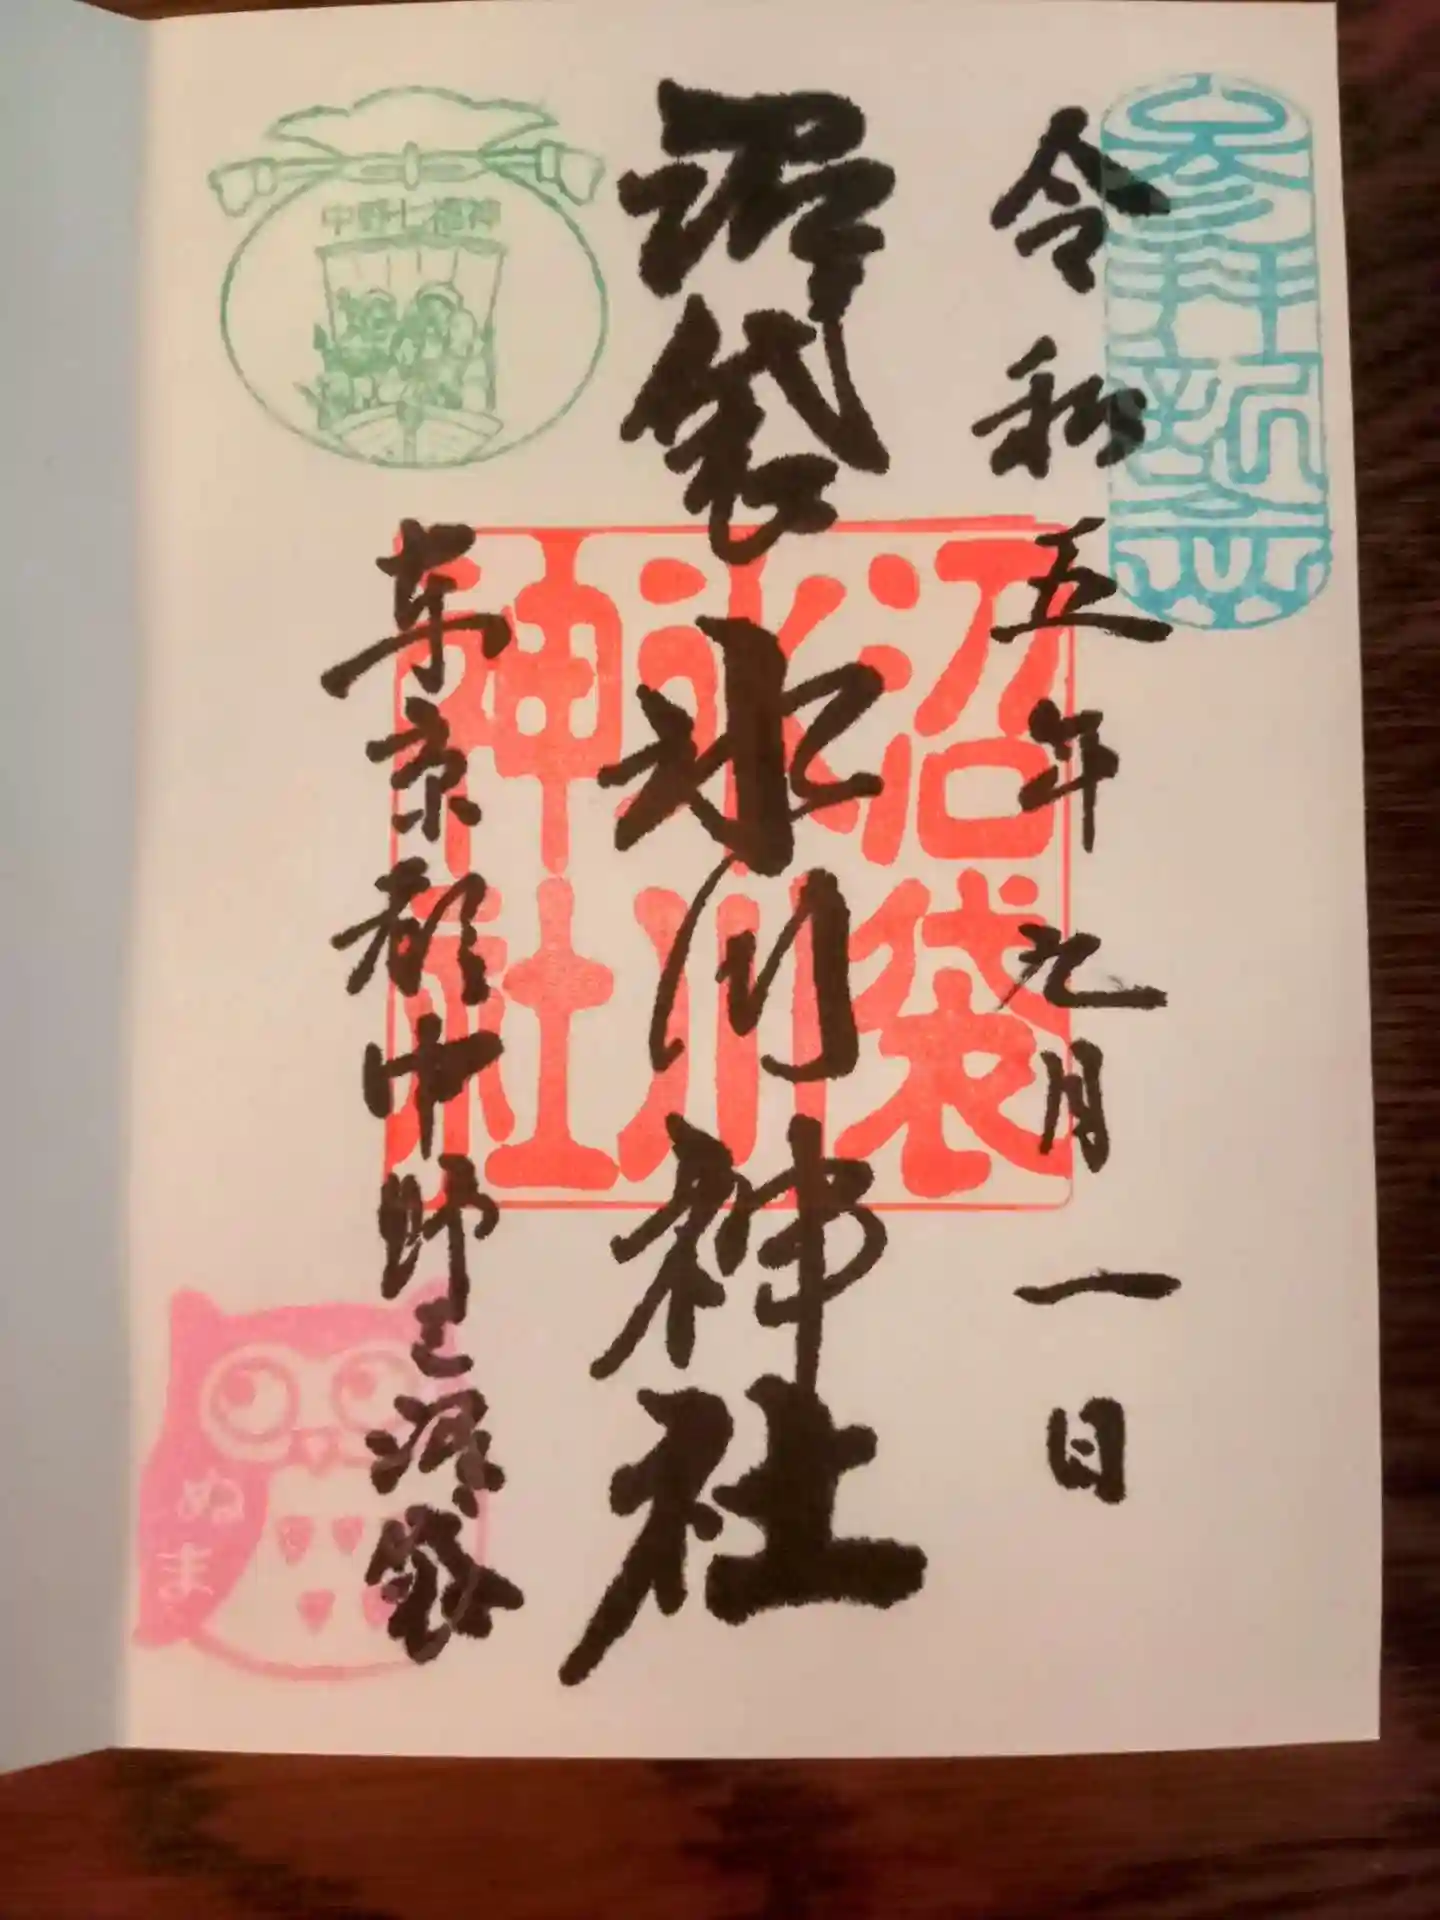 参拝
令和五年九月一日
沼袋氷川神社
沼袋
氷川
神社
東京都中野区沼袋
中野七福神
ぬま